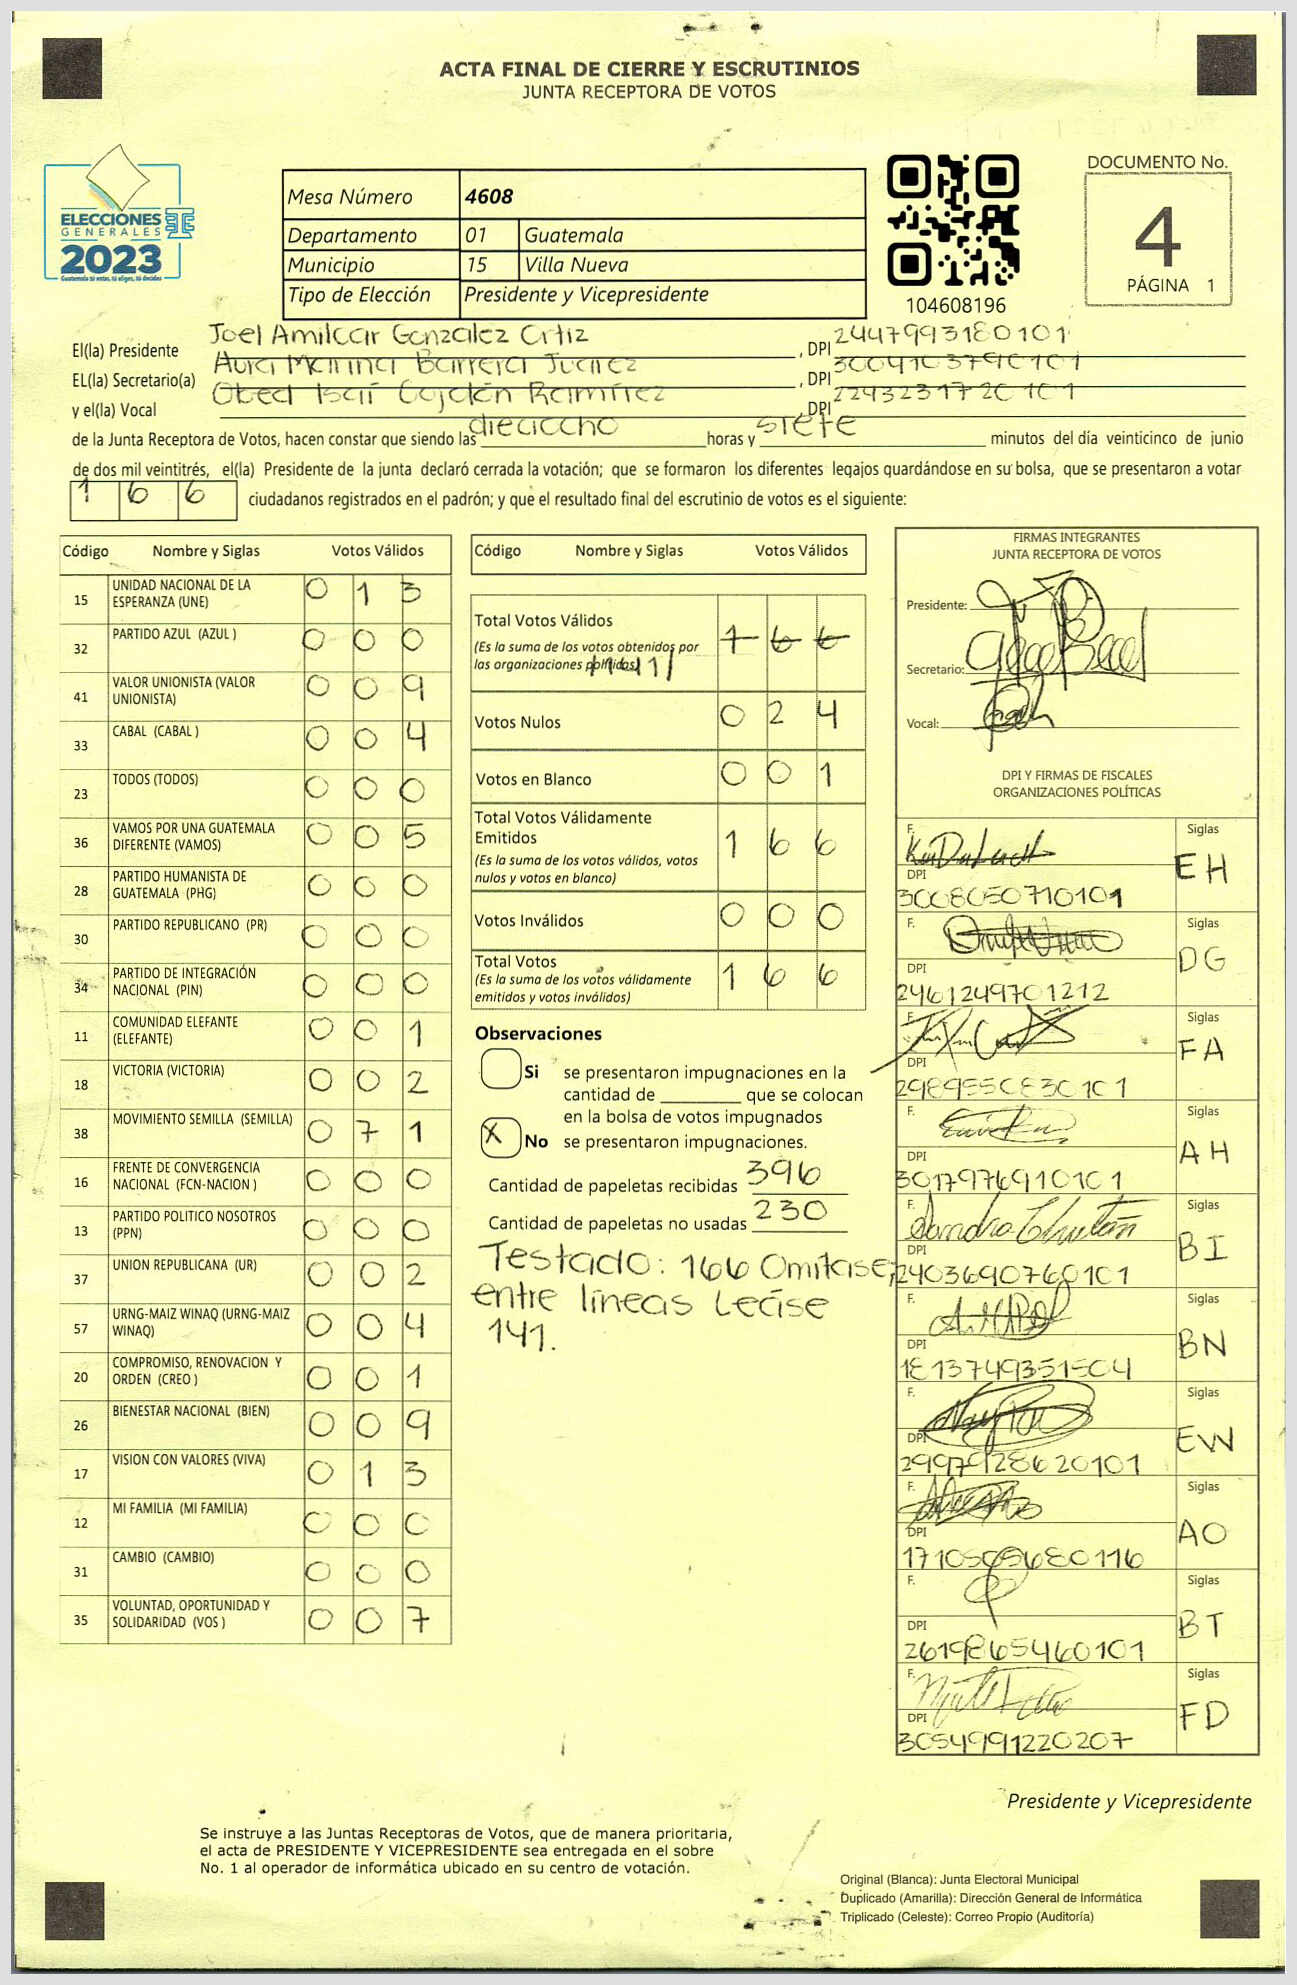 ACTA FINAL DE CIERRE Y ESCRUTINIOS
JUNTA RECEPTORA DE VOTOS
ELECCIONES
GENERALES
2023
Guatemala tú votas, tú eliges, tú decides
Mesa Número 4608
Departamento 01 Guatemala
Municipio 15 Villa Nueva
Tipo de Elección Presidente y Vicepresidente
104608196
DOCUMENTO No.
4
PÁGINA 1
El(la) Presidente Joel Amilcar Gonzalez Ortiz, DPI 2447993180101
EL(la) Secretario(a) Aura Marina Barrera Juarez, DPI 3004103790101
y el(la) Vocal Obed Isaí Gajdán Ramírez, DPI 2243231720101
de la Junta Receptora de Votos, hacen constar que siendo las dieciocho horas y siete minutos del día veinticinco de junio
de dos mil veintitrés, el(la) Presidente de la junta declaró cerrada la votación; que se formaron los diferentes legajos guardándose en su bolsa, que se presentaron a votar
1 6 6 ciudadanos registrados en el padrón; y que el resultado final del escrutinio de votos es el siguiente:
Código Nombre y Siglas Votos Válidos
15 UNIDAD NACIONAL DE LA ESPERANZA (UNE) 0 1 3
32 PARTIDO AZUL (AZUL ) 0 0 0
41 VALOR UNIONISTA (VALOR UNIONISTA) 0 0 9
33 CABAL (CABAL ) 0 0 4
23 TODOS (TODOS) 0 0 0
36 VAMOS POR UNA GUATEMALA DIFERENTE (VAMOS) 0 0 5
28 PARTIDO HUMANISTA DE GUATEMALA (PHG) 0 0 0
30 PARTIDO REPUBLICANO (PR) 0 0 0
34 PARTIDO DE INTEGRACIÓN NACIONAL (PIN) 0 0 0
11 COMUNIDAD ELEFANTE (ELEFANTE) 0 0 1
18 VICTORIA (VICTORIA) 0 0 2
38 MOVIMIENTO SEMILLA (SEMILLA) 0 7 1
16 FRENTE DE CONVERGENCIA NACIONAL (FCN-NACION ) 0 0 0
13 PARTIDO POLITICO NOSOTROS (PPN) 0 0 0
37 UNION REPUBLICANA (UR) 0 0 2
57 URNG-MAIZ WINAQ (URNG-MAIZ WINAQ) 0 0 4
20 COMPROMISO, RENOVACION Y ORDEN (CREO ) 0 0 1
26 BIENESTAR NACIONAL (BIEN) 0 0 9
17 VISION CON VALORES (VIVA) 0 1 3
12 MI FAMILIA (MI FAMILIA) 0 0 0
31 CAMBIO (CAMBIO) 0 0 0
35 VOLUNTAD, OPORTUNIDAD Y SOLIDARIDAD (VOS ) 0 0 7
Código Nombre y Siglas Votos Válidos
Total Votos Válidos 1 6 6
(Es la suma de los votos obtenidos por
las organizaciones políticas) 141
Votos Nulos 0 2 4
Votos en Blanco 0 0 1
Total Votos Válidamente
Emitidos 1 6 6
(Es la suma de los votos válidos, votos
nulos y votos en blanco)
Votos Inválidos 0 0 0
Total Votos 1 6 6
(Es la suma de los votos válidamente
emitidos y votos inválidos)
Observaciones
Si se presentaron impugnaciones en la
cantidad de ________ que se colocan
en la bolsa de votos impugnados
X No se presentaron impugnaciones.
Cantidad de papeletas recibidas 396
Cantidad de papeletas no usadas 230
Testado: 166 Omitase;
entre líneas Lecise
141.
FIRMAS INTEGRANTES
JUNTA RECEPTORA DE VOTOS
Presidente:
Secretario:
Vocal:
DPI Y FIRMAS DE FISCALES
ORGANIZACIONES POLÍTICAS
F. Siglas
DPI EH
3008050710101
F. Siglas
DPI DG
2461249701212
F. Siglas
DPI FA
2989550830101
F. Siglas
DPI AH
3017976910101
F. Sandra Chután Siglas
DPI BI
2403690760101
F. Siglas
DPI BN
1813749351504
F. Siglas
DPI EW
2997928620101
F. Siglas
DPI AO
1710505680116
F. Siglas
DPI BT
2619865460101
F. Siglas
DPI FD
3054991220207
Presidente y Vicepresidente
Se instruye a las Juntas Receptoras de Votos, que de manera prioritaria,
el acta de PRESIDENTE Y VICEPRESIDENTE sea entregada en el sobre
No. 1 al operador de informática ubicado en su centro de votación.
Original (Blanca): Junta Electoral Municipal
Duplicado (Amarilla): Dirección General de Informática
Triplicado (Celeste): Correo Propio (Auditoría)